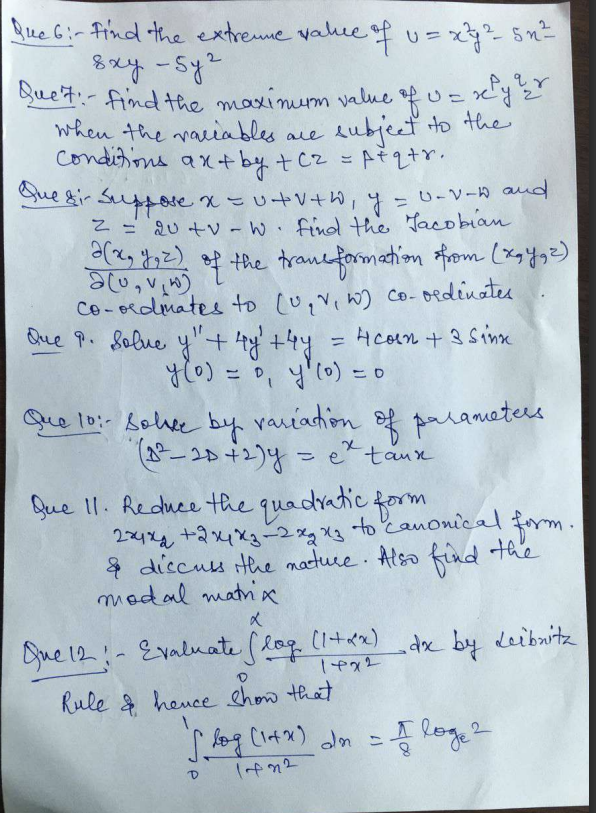 Que 6:- Find the extreme value of u = x²y² - 5x² -
8xy - 5y²
Que 7:- find the maximum value of u = x^p y^q z^r
when the variables are subject to the
conditions ax + by + cz = p+q+r.
Que 8:- Suppose x = u+v+w, y = u-v-w and
z = 2u +v - w. find the Jacobian
∂(x, y, z)/∂(u, v, w) of the transformation from (x, y, z)
co-ordinates to (u, v, w) co-ordinates .
Que 9. Solve y'' + 4y' + 4y = 4cosx + 3 Sinx
y(0) = 0, y'(0) = 0
Que 10:- Solve by variation of parameters
(D² - 2D + 2)y = e^x tanx
Que 11. Reduce the quadratic form
2x₁x₂ + 2x₁x₃ - 2x₂x₃ to canonical form.
& discuss the nature. Also find the
modal matrix
Que 12:- Evaluate ∫₀^α log (1+αx)/(1+x²) dx by Leibnitz
Rule & hence show that
∫₀^1 log (1+x)/(1+x²) dx = π/8 logₑ2